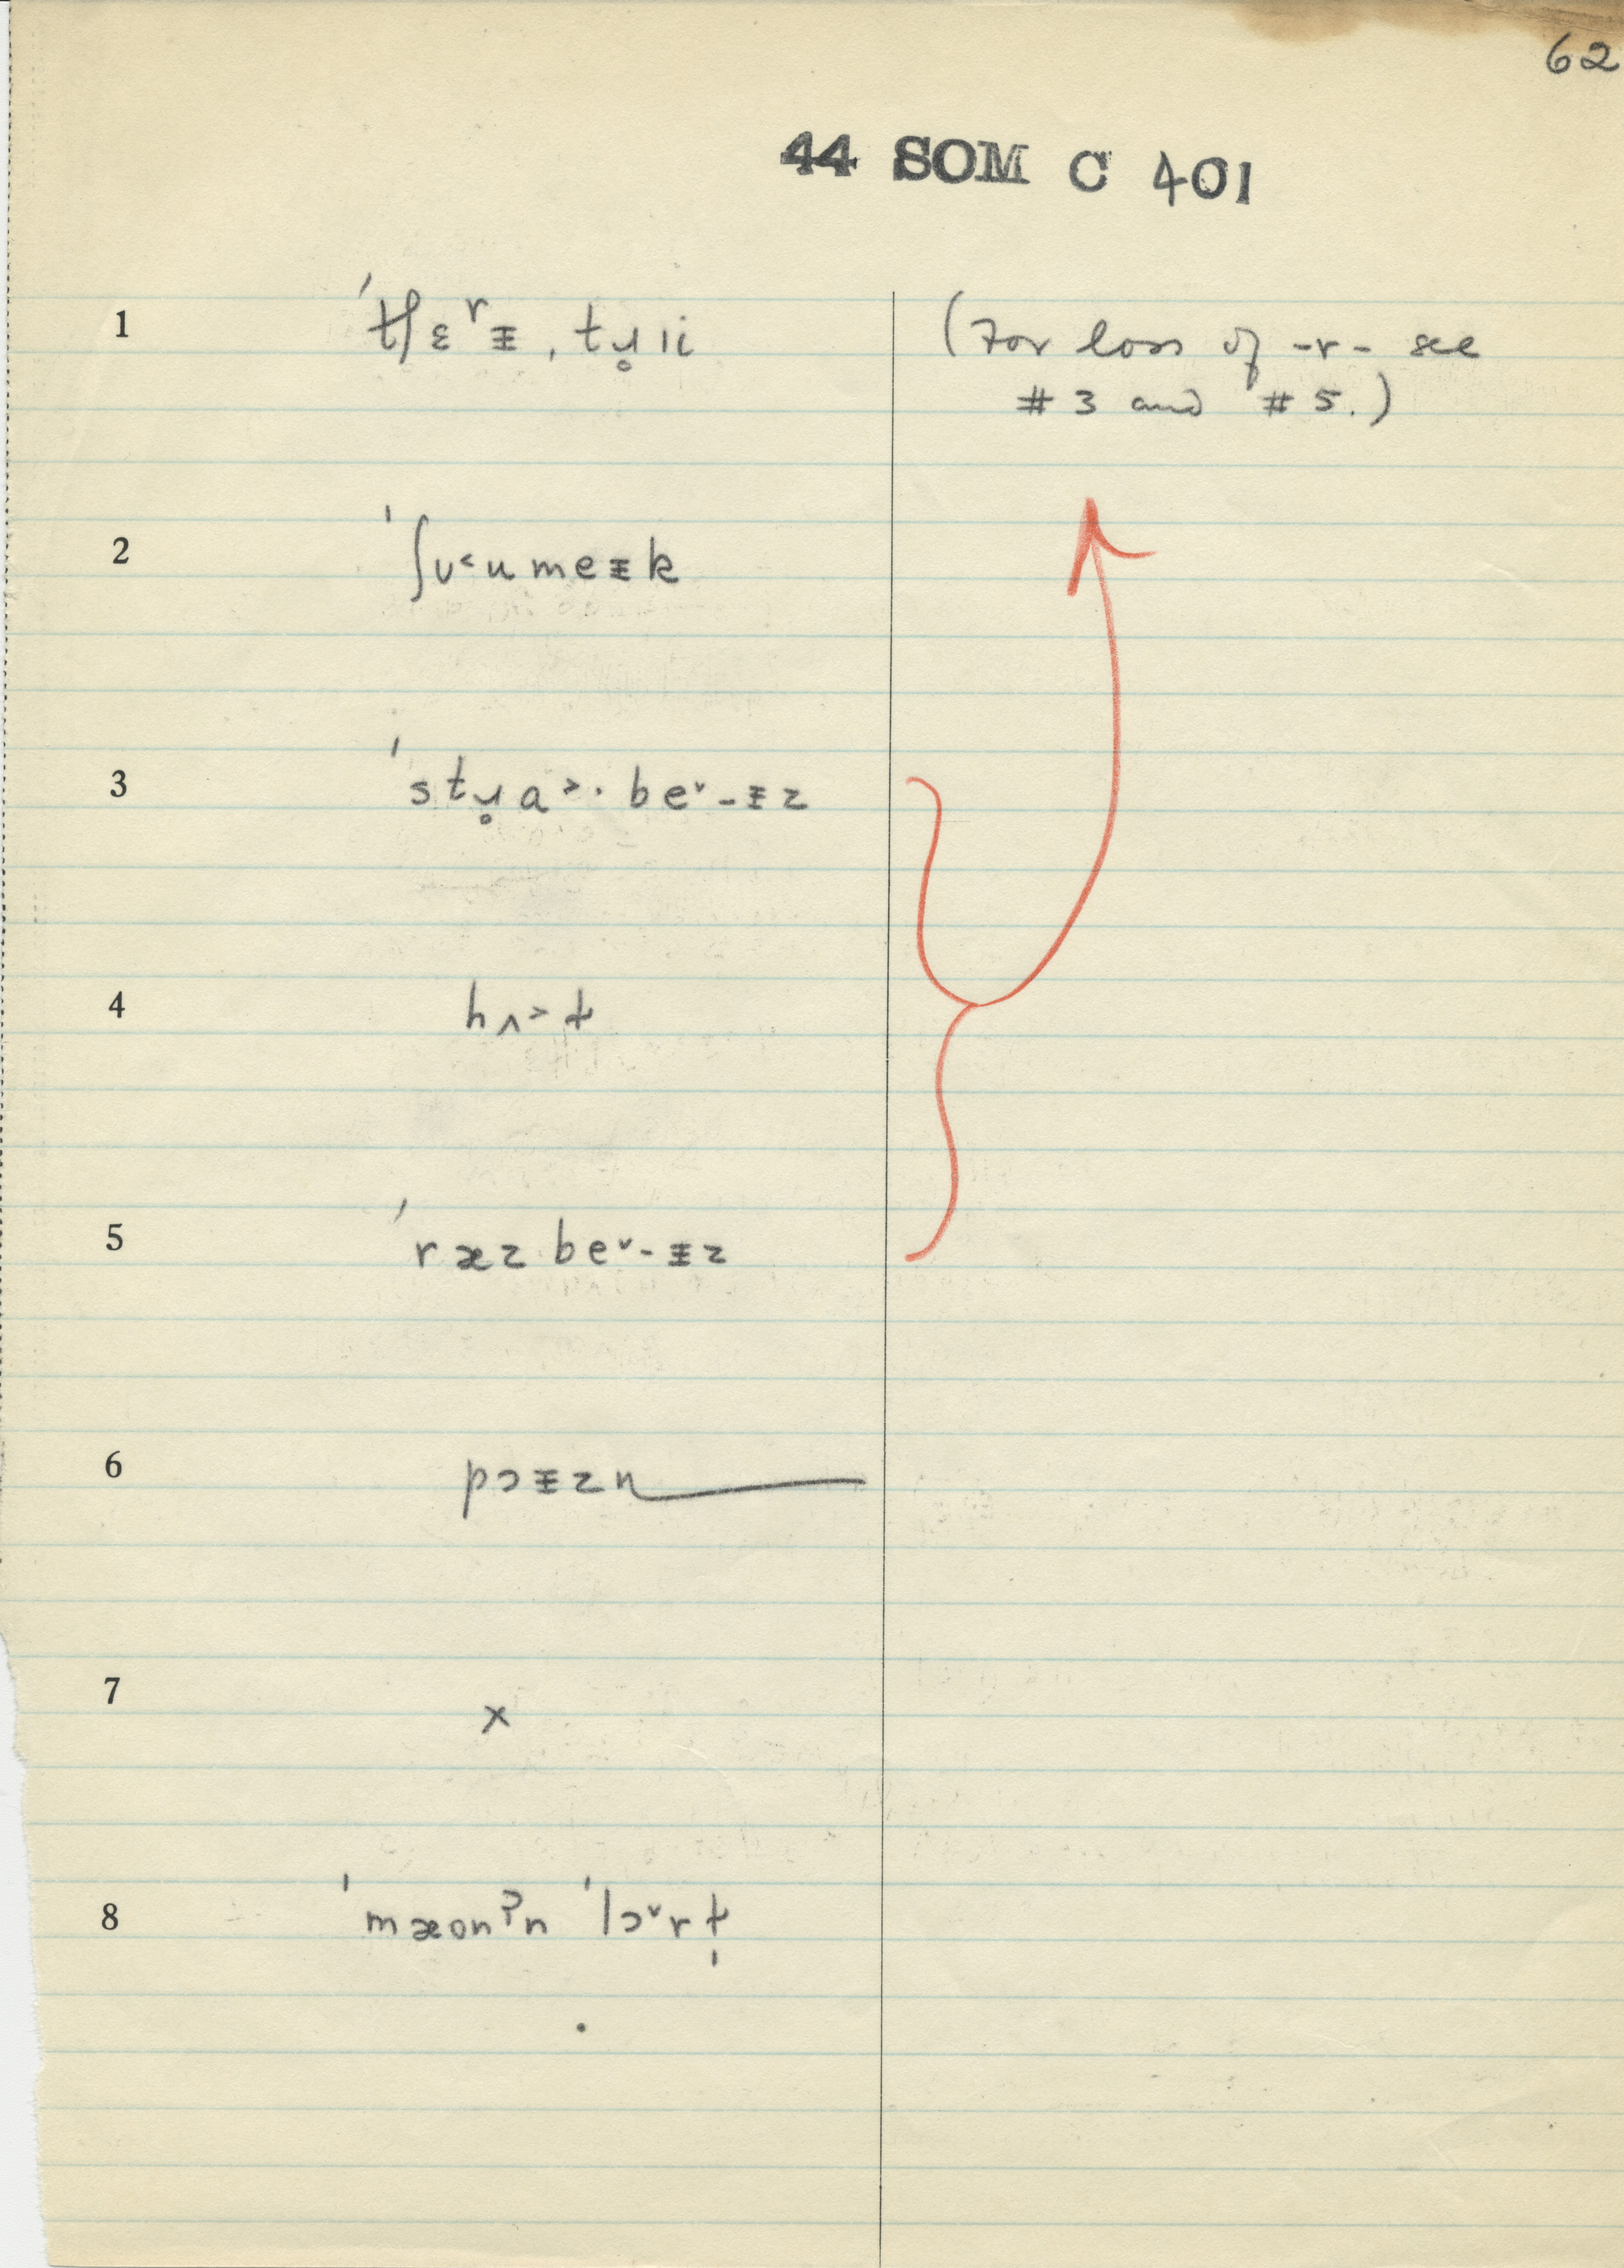 62
44 SOM C 401
1 ˈtʃɛʳᵻ, tɹ̥ii (For loss of -r- see
#3 and #5.)
2 ˈʃᴜ˂umeᵻk
3 ˈstɹ̥ɑ˃·be˅-ᵻz
4 hʌ˃ɫ
5 ˈræzbe˅-ᵻz
6 pɔᵻzn
7 x
8 ˈmæonʔn ˈlɔ˅rɫ̩